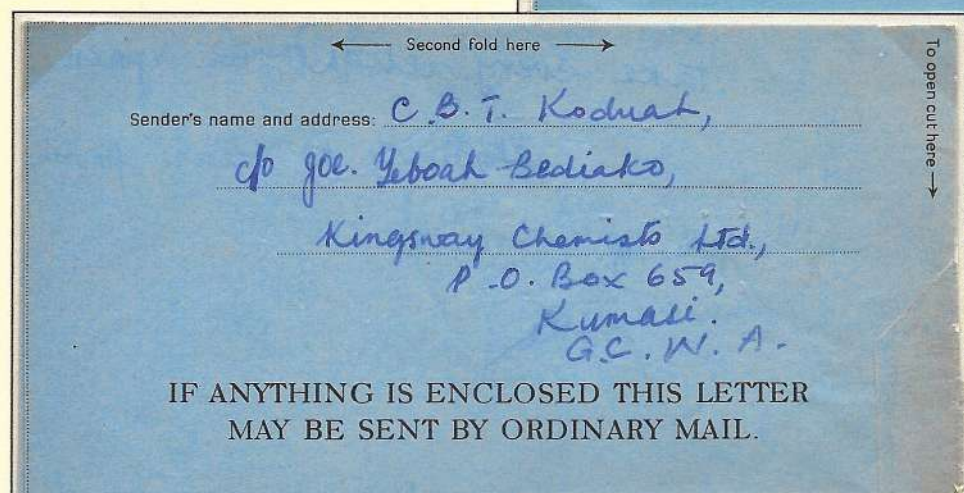 ← Second fold here →
To open cut here →
Sender's name and address: C.B.T. Koduah,
c/o Joe. Yeboah Bediako,
Kingsway Chemists Ltd.,
P.O. Box 659,
Kumasi.
G.C. W. A.
IF ANYTHING IS ENCLOSED THIS LETTER
MAY BE SENT BY ORDINARY MAIL.